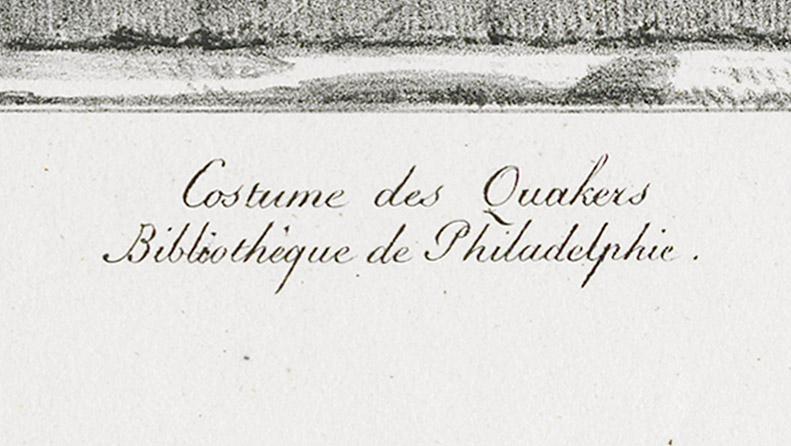 Costume des Quakers
Bibliothèque de Philadelphie.